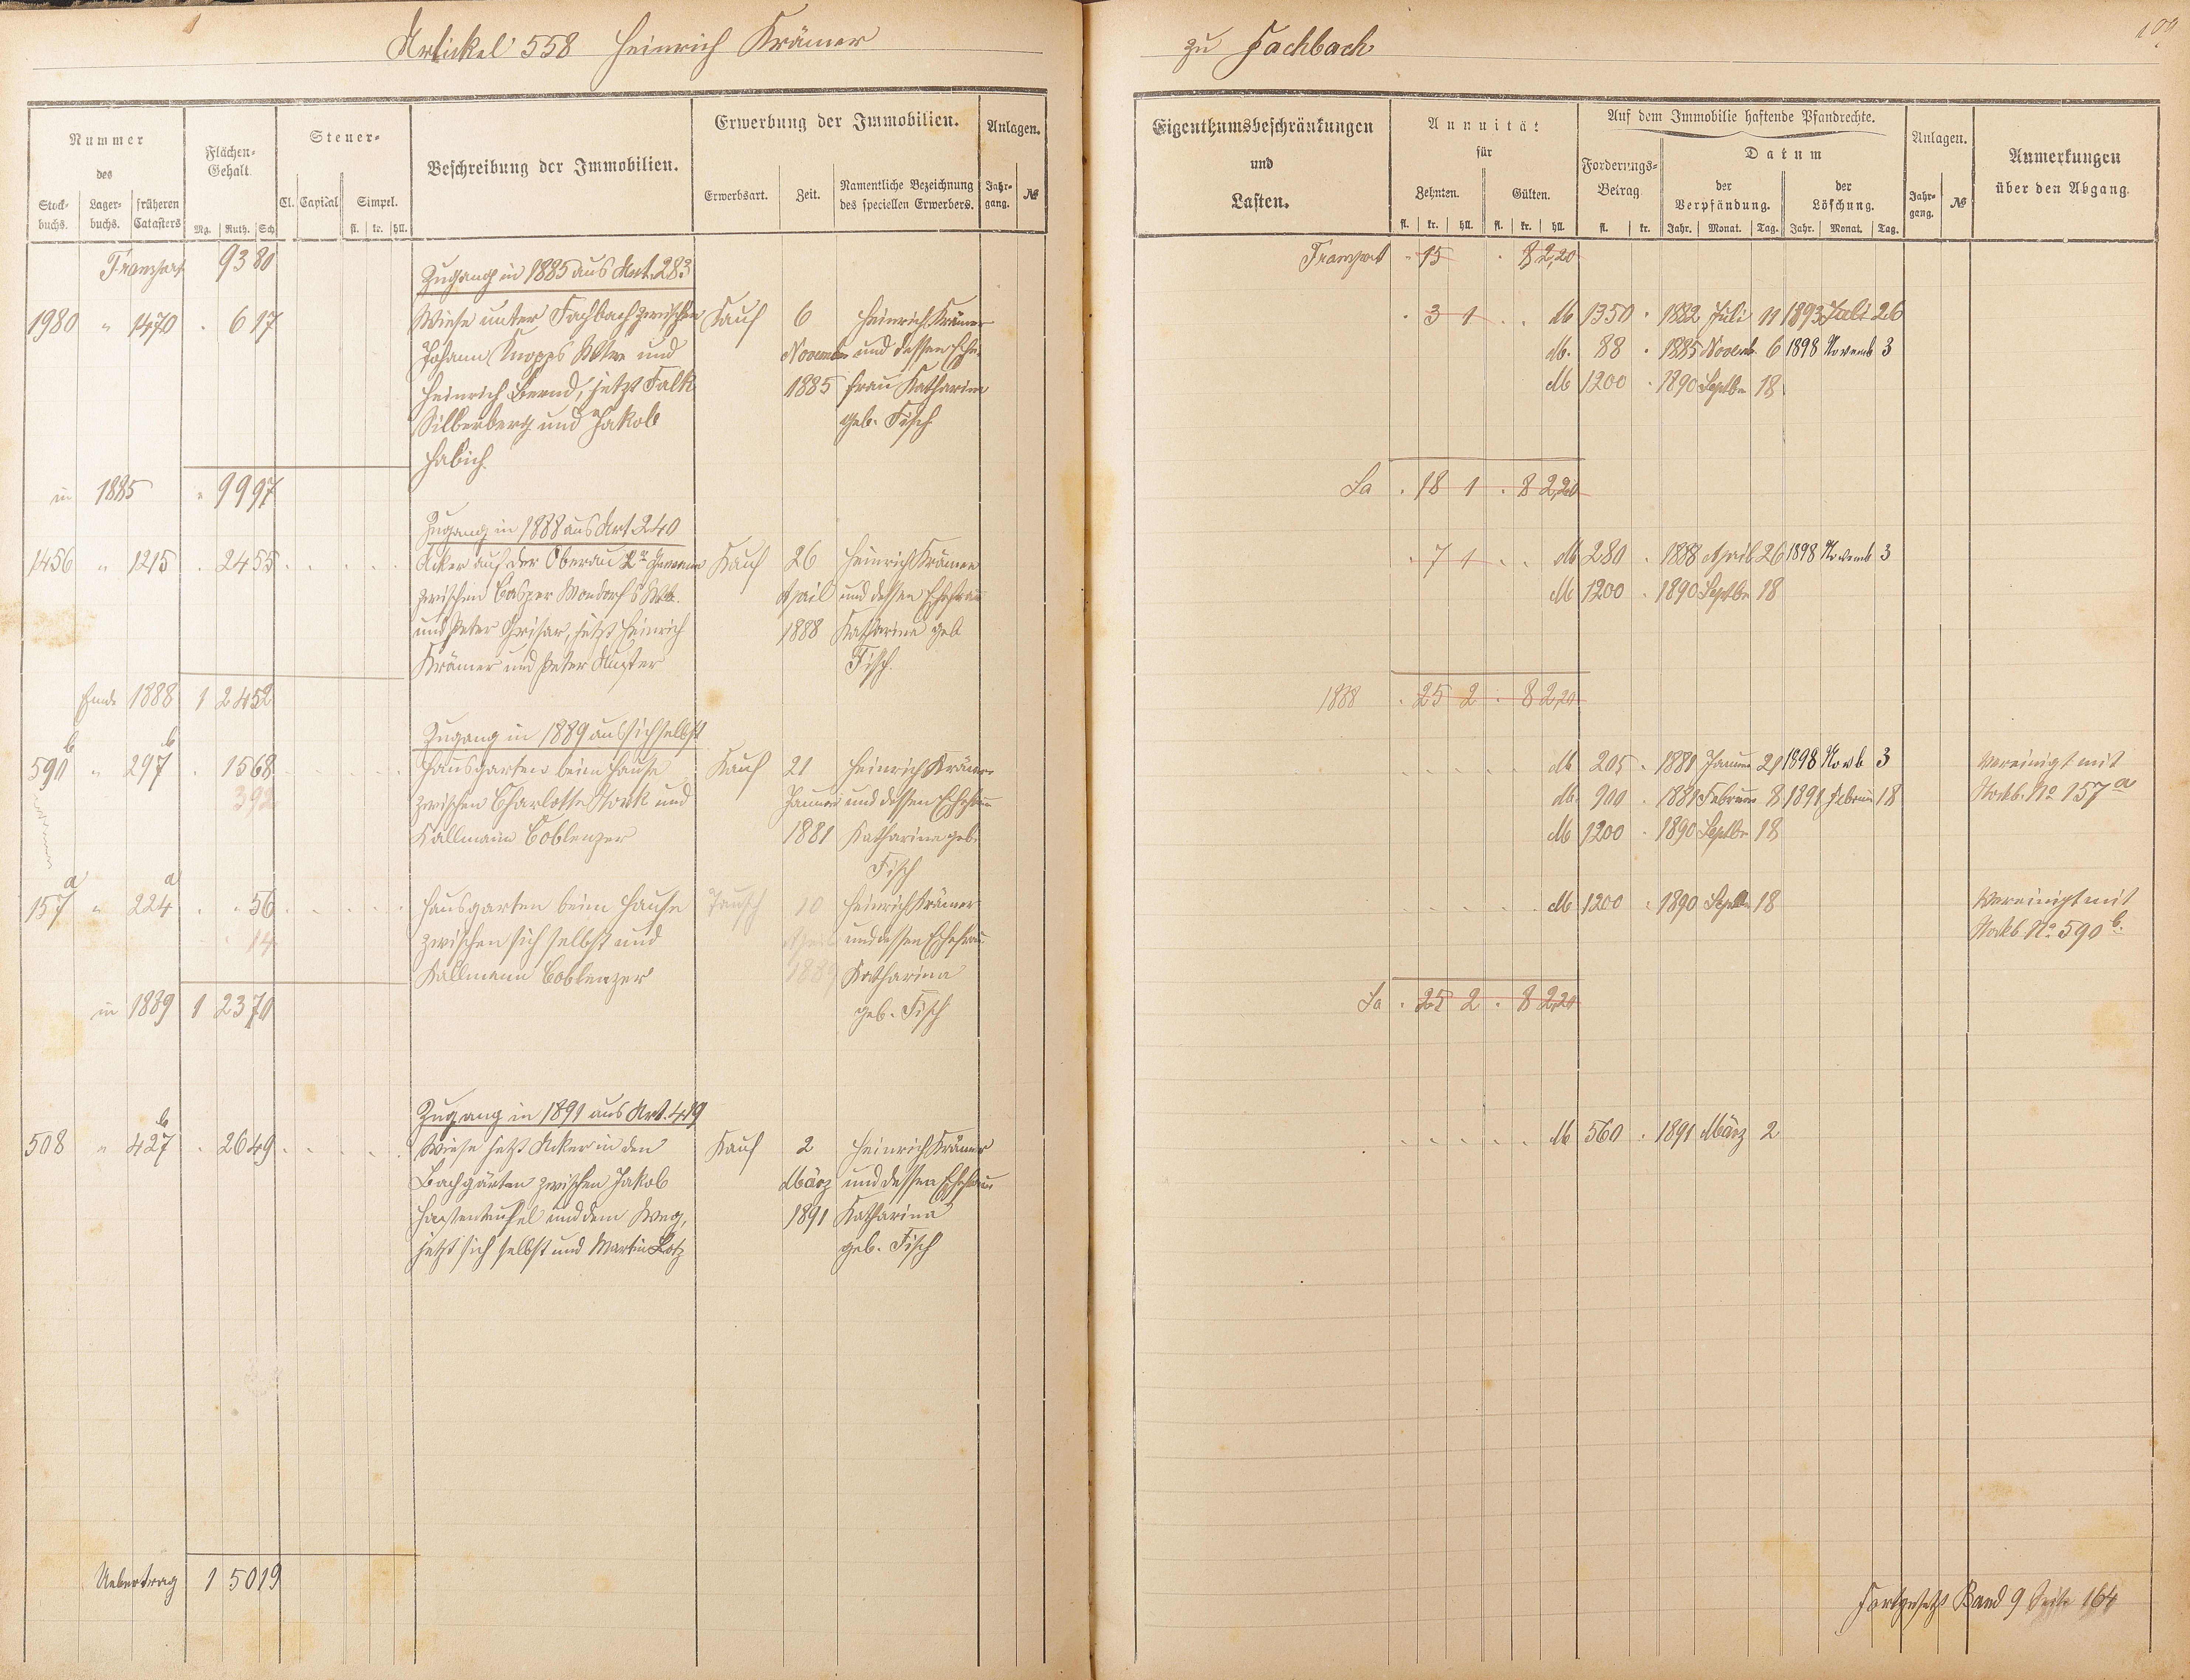 Artickel 558 Heinrich Krämer
Nummer
des
Stock-
buchs.
Lager-
buchs.
früheren
Catasters
Flächen-
Gehalt.
Mg. Ruth. Sch
Steuer-
Cl. Capital Simpel.
fl. kr. hll.
Beschreibung der Immobilien.
Erwerbung der Immobilien.
Erwerbsart. Zeit.
Namentliche Bezeichnung
des speciellen Erwerbers.
Anlagen.
Jahr-
gang.
№
Transport 93 80
Zugang in 1885 aus Art. 283
1980 " 1470 . 6 17 Wiese unter Fachbach zwischen Kauf 6 Heinrich Krämer
Johann Knopps Wtwe und November und dessen Ehe-
Heinrich Bernd, jetzt Falk 1885 frau Katharina
Silberberg und Jakob geb. Fisch
Habich.
in 1885 " 99 97
Zugang in 1888 aus Art. 240
1456 " 1215 . 24 55 Acker auf der Oberau 2r Gewann Kauf 26 Heinrich Krämer
zwischen Casper Mondorf's Wtb. April und dessen Ehefrau
und Peter Grisar, jetzt Heinrich 1888 Katharina geb
Krämer und Peter Fisch.
Ende 1888 1 24 52
Zugang in 1889 aus sich selbst
590b " 297b . 15 68 Hausgarten beim Hause Kauf 21 Heinrich Krämer
3 92 zwischen Charlotte und Januar und dessen Ehefrau
Kallmann Coblenzer 1881 Katharina geb.
Fisch
157a " 224a . " 56 Hausgarten beim Hause Tausch 10 Heinrich Krämer
14 zwischen sich selbst und April und dessen Ehefrau
Kallmann Coblenzer 1889 Katharina
in 1889 1 23 70 geb. Fisch
Zugang in 1891 aus Art. 419
508 " 427b . 26 49 Wiese jetzt Acker in den Kauf 2 Heinrich Krämer
Bachgärten zwischen Jakob März und dessen Ehefrau
Hastenteufel und dem Weg, 1891 Katharina
jetzt sich selbst und Martin Lotz geb. Fisch
Uebertrag 1 50 19
zu Fachbach
109
Eigenthumsbeschränkungen
und
Lasten.
Annuität
für
Zehnten. Gülten.
fl. kr. hll. fl. kr. hll.
Auf dem Immobilie haftende Pfandrechte.
Forderungs-
Betrag
fl. kr.
Datum
der
Verpfändung.
Jahr. Monat. Tag.
der
Löschung.
Jahr. Monat. Tag.
Anlagen.
Jahr-
gang.
№
Anmerkungen
über den Abgang.
Transport " 15 . 8 2,20
. 3 1 . . M 1350 . 1882 Juli 11 1893 Juli 26
M. 88 . 1885 Novemb. 6 1898 Novemb 3
M 1200 . 1890 Septbr 18
Sa . 18 1 . 8 2,20
. 7 1 . . M 280 . 1888 April 26 1898 Novemb 3
M 1200 . 1890 Septbr 18
1888 . 25 2 . 8 2,20
M 205 . 1881 Januar 21 1898 Novb 3 Vereinigt mit
M. 900 . 1881 Februar 8 1891 Februar 18 Stockb. No 157a
M 1200 . 1890 Septbr 18
M 1200 . 1890 Septbr 18 Vereinigt mit
Stockb. No. 590b.
Sa . 25 2 . 8 2,20
M 560 . 1891 März 2
Fortgesetzt Band 9 Seite 164